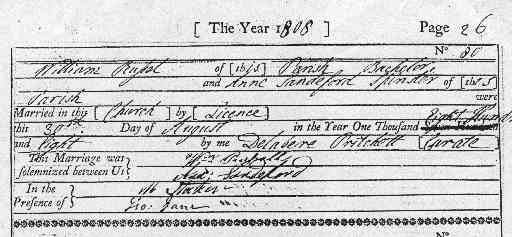 [ The Year 1808 ] Page 26
No 80
William of [this] Parish Bachelor
and Anne Sandford Spinster of [this]
Parish were
Married in this [Church] by [Licence]
this 30th Day of August in the Year One Thousand Eight Hundred
and Eight by me Delabere Pritchett [Curate]
This Marriage was Wm
solemnized between Us Ann Sandford
In the
Presence of Geo: Jane
No